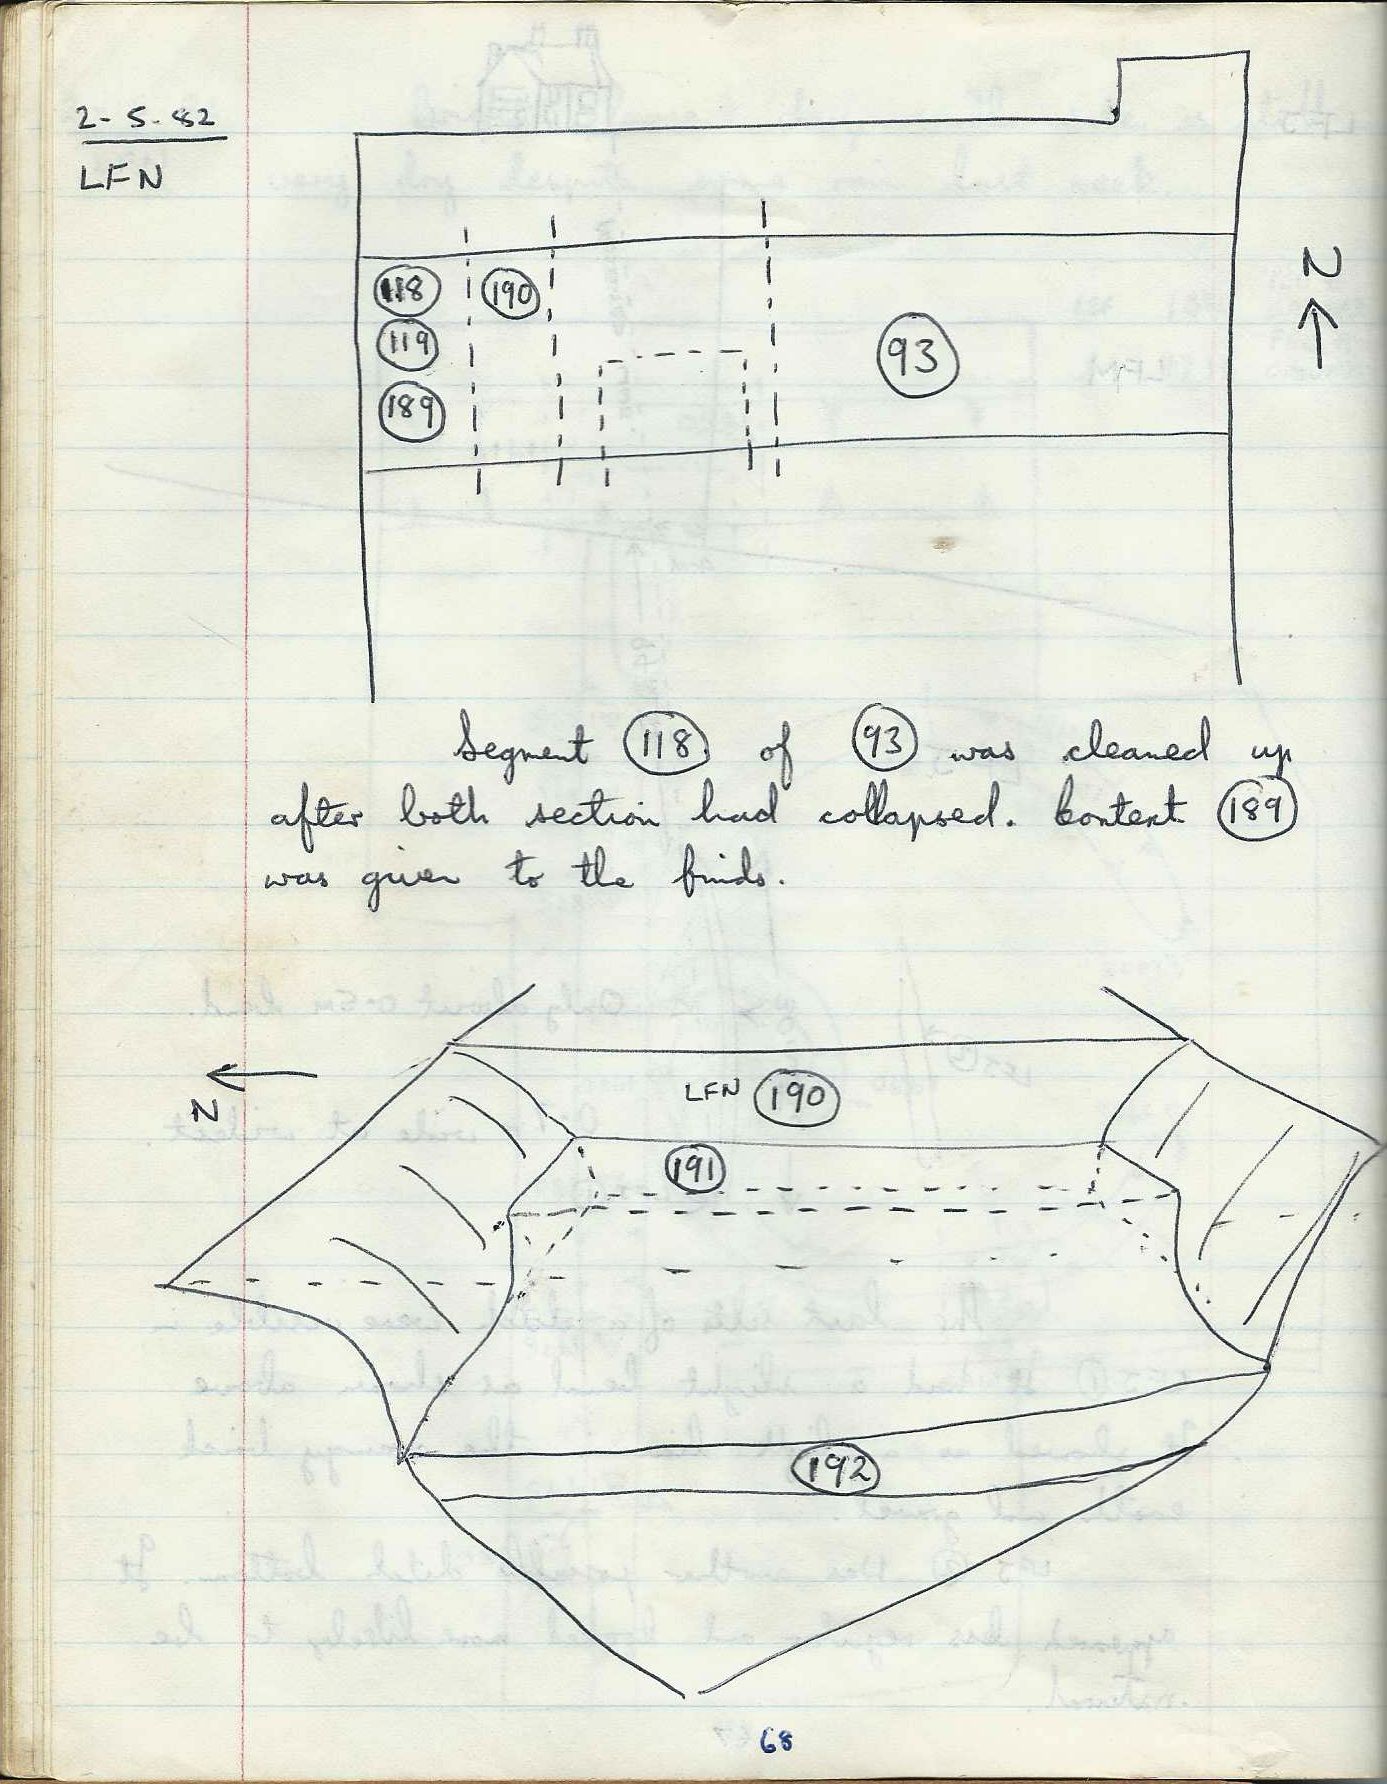 2-5-82
LFN
118
190
119
93
189
N
Segment 118 of 93 was cleaned up
after both section had collapsed. Context 189
was given to the finds.
N
LFN 190
191
192
68